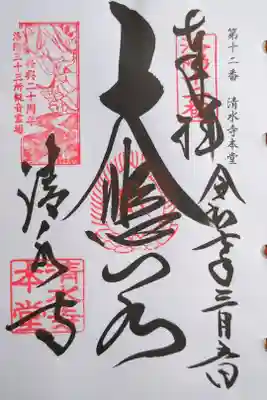 第十二番 清水寺本堂
奉拝 令和七年三月
大悲閣
復興二十周年
洛陽三十三所観音霊場
清水寺
清水寺
本堂